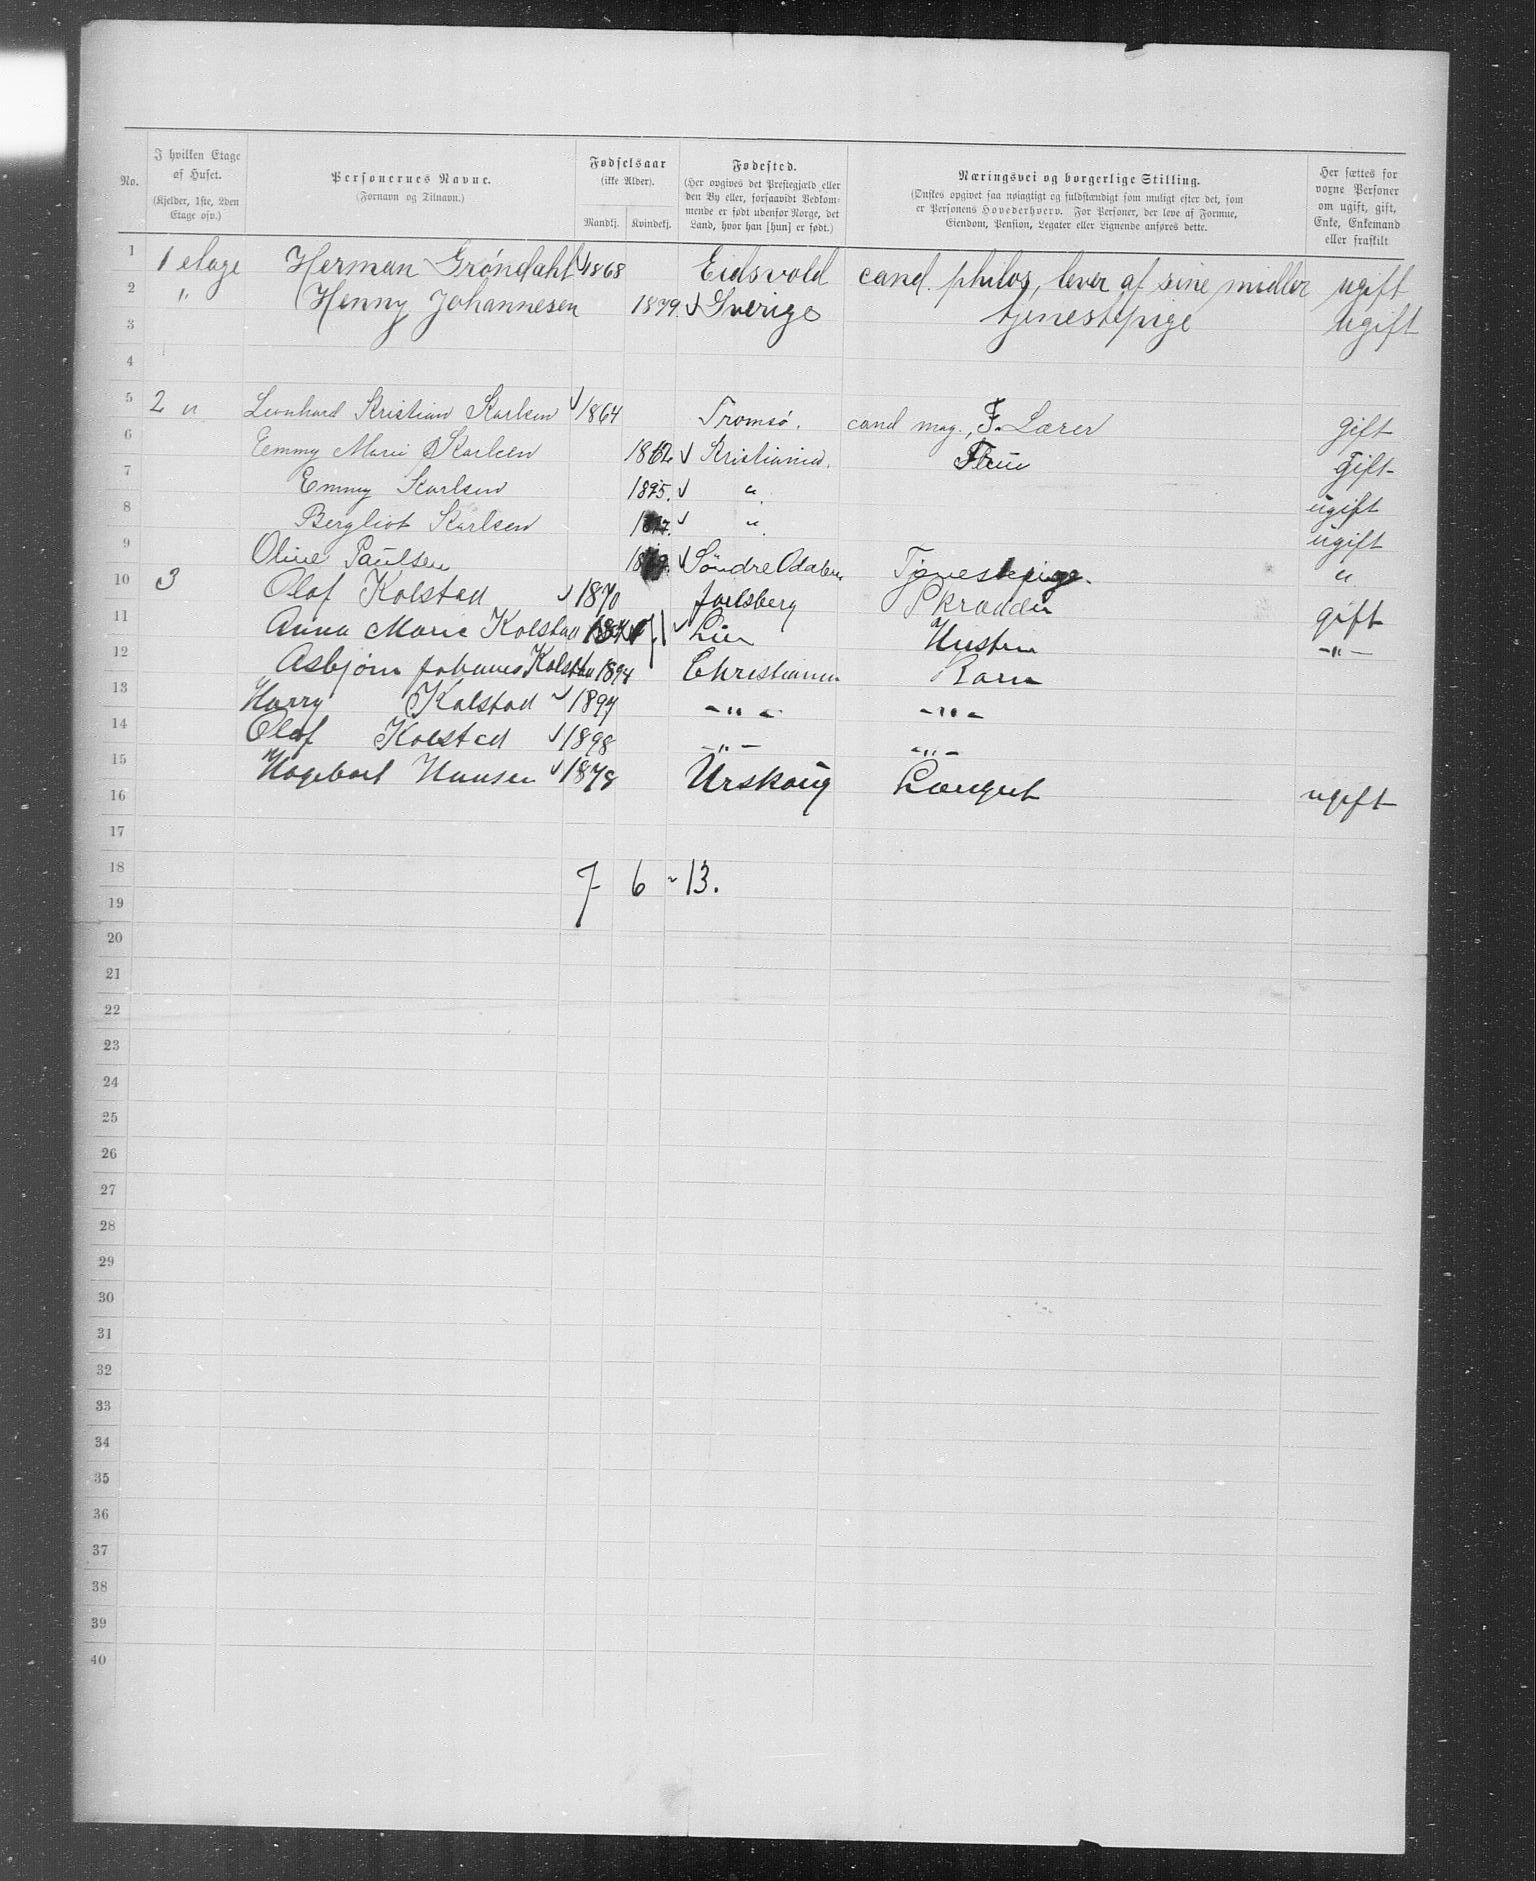 No.
I hvilken Etage af Huset.
(Kjelder, 1ste, 2den Etage osv.)
Personernes Navne.
(Fornavn og Tilnavn.)
Fødselsaar
(ikke Alder).
Mandkj. Kvindekj.
Fødested.
(Her opgives det Prestegjæld eller den By eller, forsaavidt Vedkommende er født udenfor Norge, det Land, hvor han [hun] er født.)
Næringsvei og borgerlige Stilling.
(Ønskes opgivet saa nøiagtigt og fuldstændigt som muligt efter det, som er Personens Hovederhverv. For Personer, der leve af Formue, Eiendom, Pension, Legater eller Lignende anføres dette.
Her sættes for voxne Personer om ugift, gift, Enke, Enkemand eller fraskilt
1 1 etage Herman Grøndahl 1868 Eidsvold cand. philos, lever af sine midler ugift
2 " Henny Johannesen 1879. Sverige tjenestepige ugift
3
4
5 2 " Leonhard Kristian Karlsen 1864 Tromsø. cand mag., F. Lærer gift
6 Emmy Marie Karlsen 1862 Kristiania. Frue Gift
7 Emmy Karlsen 1895. " ugift
8 Bergliot Karlsen " ugift
9 Oline Paulsen Søndre Odalen Tjenestepige. "
10 3 Olaf Kolstad 1870 Jarlsberg Skrædder gift
11 Anna Marie Kolstad 71 Lier Hustru -"-
12 Asbjørn Johannes Kolstad 1894 Christiania Barn
13 Harry Kolstad 1897 -"- -"-
14 Olaf Kolstad 1898 -"- -"-
15 Hansen 1878 Urskoug ugift
16
17
18 7 6 - 13.
19
20
21
22
23
24
25
26
27
28
29
30
31
32
33
34
35
36
37
38
39
40